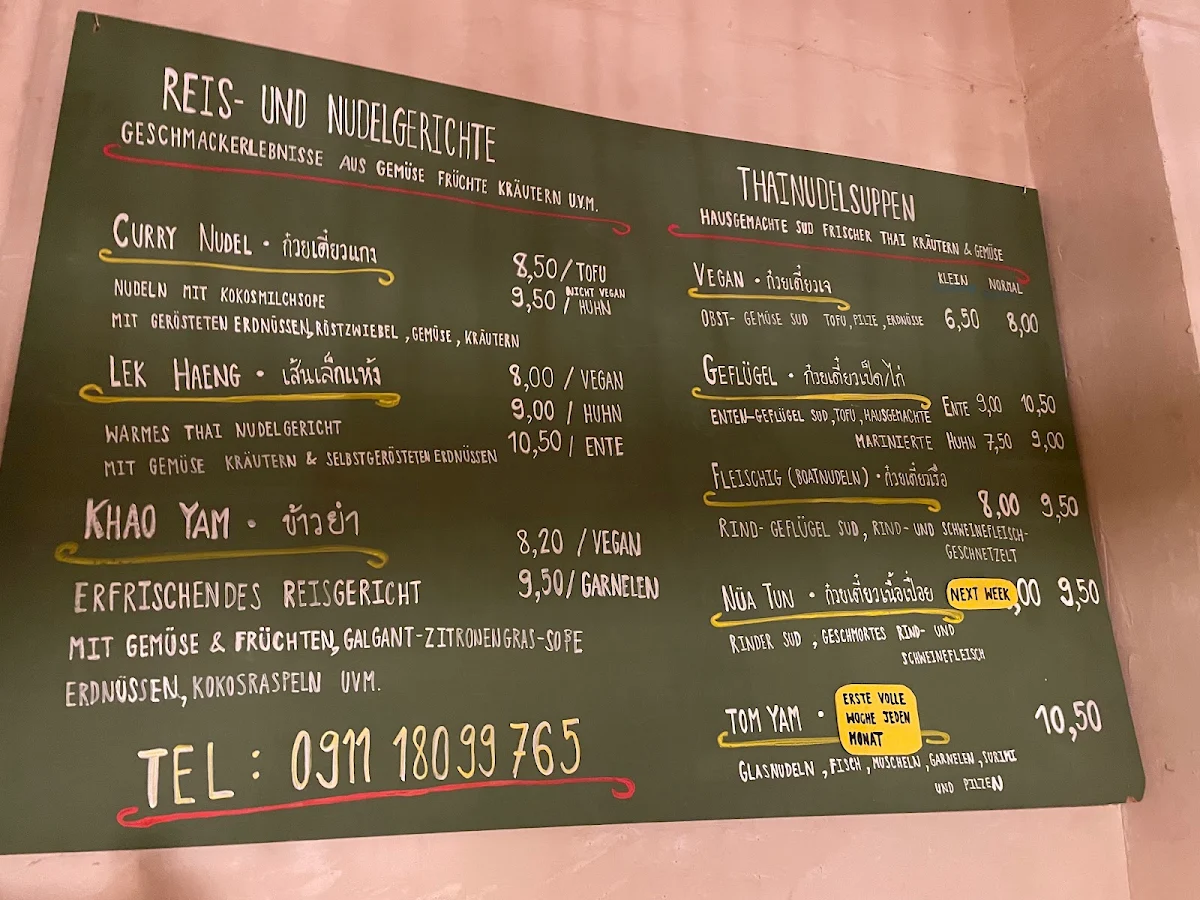 REIS- UND NUDELGERICHTE
GESCHMACKERLEBNISSE AUS GEMÜSE FRÜCHTE KRÄUTERN U.V.M.
CURRY NUDEL · ก๋วยเตี๋ยวแกง
8,50 / TOFU
NICHT VEGAN
9,50 / HUHN
NUDELN MIT KOKOSMILCHSOßE
MIT GERÖSTETEN ERDNÜSSEN, RÖSTZWIEBEL, GEMÜSE, KRÄUTERN
LEK HAENG · เส้นเล็กแห้ง
8,00 / VEGAN
9,00 / HUHN
10,50 / ENTE
WARMES THAI NUDELGERICHT
MIT GEMÜSE KRÄUTERN & SELBSTGERÖSTETEN ERDNÜSSEN
KHAO YAM · ข้าวยำ
8,20 / VEGAN
9,50 / GARNELEN
ERFRISCHENDES REISGERICHT
MIT GEMÜSE & FRÜCHTEN, GALGANT-ZITRONENGRAS-SOßE
ERDNÜSSEN, KOKOSRASPELN UVM.
TEL: 0911 18099765
THAINUDELSUPPEN
HAUSGEMACHTE SUD FRISCHER THAI KRÄUTERN & GEMÜSE
KLEIN NORMAL
VEGAN · ก๋วยเตี๋ยวเจ
OBST- GEMÜSE SUD TOFU, PILZE, ERDNÜSSE 6,50 8,00
GEFLÜGEL · ก๋วยเตี๋ยวเป็ด/ไก่
ENTEN-GEFLÜGEL SUD, TOFU, HAUSGEMACHTE ENTE 9,00 10,50
MARINIERTE HUHN 7,50 9,00
FLEISCHIG (BOATNUDELN) · ก๋วยเตี๋ยวเรือ
8,00 9,50
RIND- GEFLÜGEL SUD, RIND- UND SCHWEINEFLEISCH-
GESCHNETZELT
NÜA TUN · ก๋วยเตี๋ยวเนื้อเปื่อย NEXT WEEK ,00 9,50
RINDER SUD, GESCHMORTES RIND- UND
SCHWEINEFLEISCH
TOM YAM · ERSTE VOLLE
WOCHE JEDEN
MONAT
10,50
GLASNUDELN, FISCH, MUSCHELN, GARNELEN, SURIMI
UND PILZEN